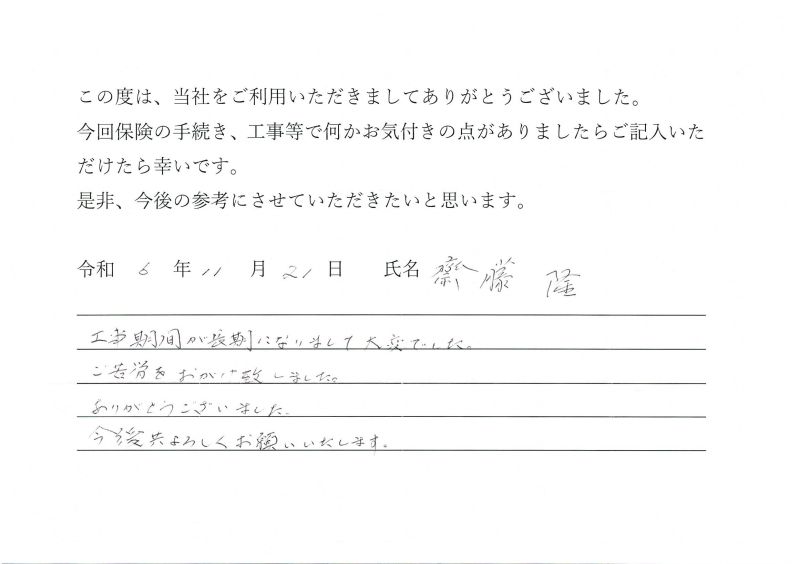 この度は、当社をご利用いただきましてありがとうございました。
今回保険の手続き、工事等で何かお気付きの点がありましたらご記入いた
だけたら幸いです。
是非、今後の参考にさせていただきたいと思います。
令和 6 年 11 月 21 日 氏名 齋藤 隆
工事期間が長期になりまして大変でした。
ご苦労をおかけ致しました。
ありがとうございました。
今後共よろしくお願いいたします。